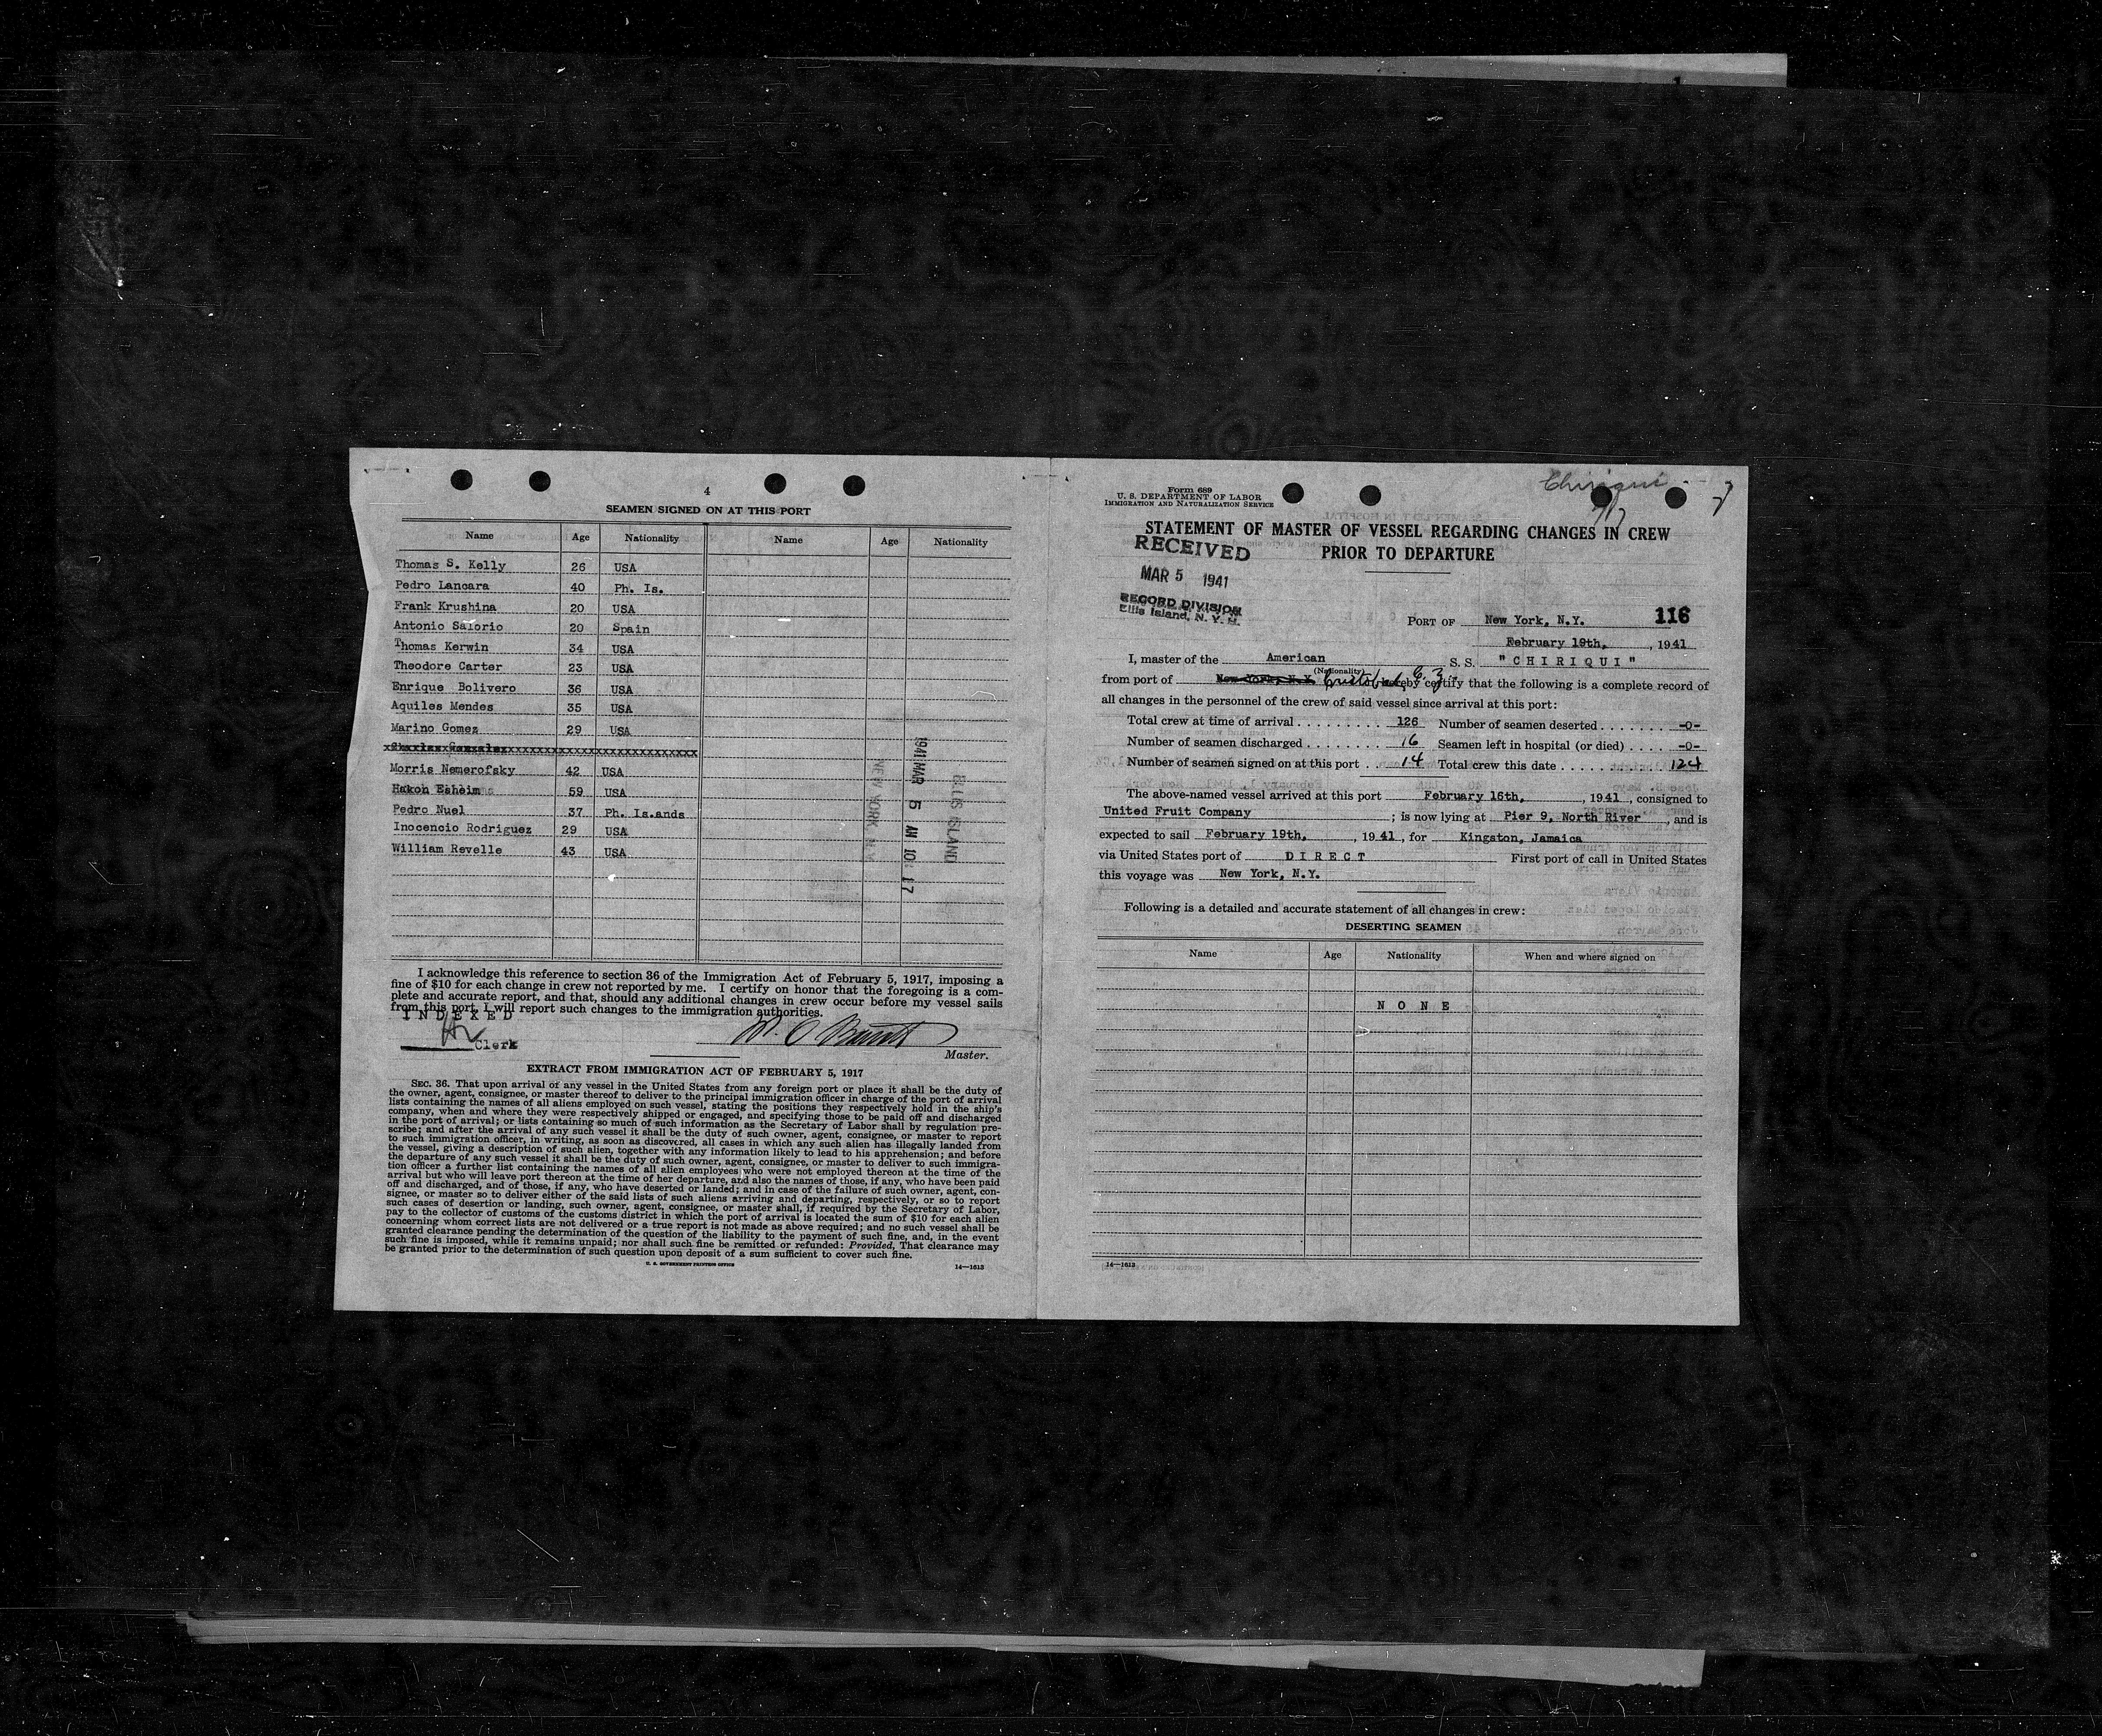 4
SEAMEN SIGNED ON AT THIS PORT
Name Age Nationality Name Age Nationality
Thomas S. Kelly 26 USA
Pedro Lancara 40 Ph. Is.
Frank Krushina 20 USA
Antonio Salorio 20 Spain
Thomas Kerwin 34 USA
Theodore Carter 23 USA
Enrique Bolivero 36 USA
Aquiles Mendes 35 USA
Marino Gomez 29 USA
Morris Nemerofsky 42 USA
Hakon Esheim 59 USA
Pedro Nuel 37 Ph. Is.ands
Inocencio Rodriguez 29 USA
William Revelle 43 USA
1941 MAR 5 AM 10 17
ELLIS ISLAND
NEW YORK, N.Y.
I acknowledge this reference to section 36 of the Immigration Act of February 5, 1917, imposing a
fine of $10 for each change in crew not reported by me. I certify on honor that the foregoing is a com-
plete and accurate report, and that, should any additional changes in crew occur before my vessel sails
from this port, I will report such changes to the immigration authorities.
INDEXED
Clerk
Master.
EXTRACT FROM IMMIGRATION ACT OF FEBRUARY 5, 1917
SEC. 36. That upon arrival of any vessel in the United States from any foreign port or place it shall be the duty of
the owner, agent, consignee, or master thereof to deliver to the principal immigration officer in charge of the port of arrival
lists containing the names of all aliens employed on such vessel, stating the positions they respectively hold in the ship's
company, when and where they were respectively shipped or engaged, and specifying those to be paid off and discharged
in the port of arrival; or lists containing so much of such information as the Secretary of Labor shall by regulation pre-
scribe; and after the arrival of any such vessel it shall be the duty of such owner, agent, consignee, or master to report
to such immigration officer, in writing, as soon as discovered, all cases in which any such alien has illegally landed from
the vessel, giving a description of such alien, together with any information likely to lead to his apprehension; and before
the departure of any such vessel it shall be the duty of such owner, agent, consignee, or master to deliver to such immigra-
tion officer a further list containing the names of all alien employees who were not employed thereon at the time of the
arrival but who will leave port thereon at the time of her departure, and also the names of those, if any, who have been paid
off and discharged, and of those, if any, who have deserted or landed; and in case of the failure of such owner, agent, con-
signee, or master so to deliver either of the said lists of such aliens arriving and departing, respectively, or so to report
such cases of desertion or landing, such owner, agent, consignee, or master shall, if required by the Secretary of Labor,
pay to the collector of customs of the customs district in which the port of arrival is located the sum of $10 for each alien
concerning whom correct lists are not delivered or a true report is not made as above required; and no such vessel shall be
granted clearance pending the determination of the question of the liability to the payment of such fine, and, in the event
such fine is imposed, while it remains unpaid; nor shall such fine be remitted or refunded: Provided, That clearance may
be granted prior to the determination of such question upon deposit of a sum sufficient to cover such fine.
U. S. GOVERNMENT PRINTING OFFICE 14—1613
Chiriqui
Form 689
U. S. DEPARTMENT OF LABOR
IMMIGRATION AND NATURALIZATION SERVICE
STATEMENT OF MASTER OF VESSEL REGARDING CHANGES IN CREW
PRIOR TO DEPARTURE
RECEIVED
MAR 5 1941
RECORD DIVISION
Ellis Island, N. Y. H.
PORT OF New York, N.Y. 116
February 19th, , 1941
I, master of the American S. S. "CHIRIQUI"
(Nationality)
from port of New York, N.Y. Cristobal, C.Z. hereby certify that the following is a complete record of
all changes in the personnel of the crew of said vessel since arrival at this port:
Total crew at time of arrival 126 Number of seamen deserted -0-
Number of seamen discharged 16 Seamen left in hospital (or died) -0-
Number of seamen signed on at this port 14 Total crew this date 124
The above-named vessel arrived at this port February 16th, , 1941, consigned to
United Fruit Company ; is now lying at Pier 9, North River , and is
expected to sail February 19th, , 1941, for Kingston, Jamaica
via United States port of DIRECT First port of call in United States
this voyage was New York, N.Y.
Following is a detailed and accurate statement of all changes in crew:
DESERTING SEAMEN
Name Age Nationality When and where signed on
NONE
14—1613